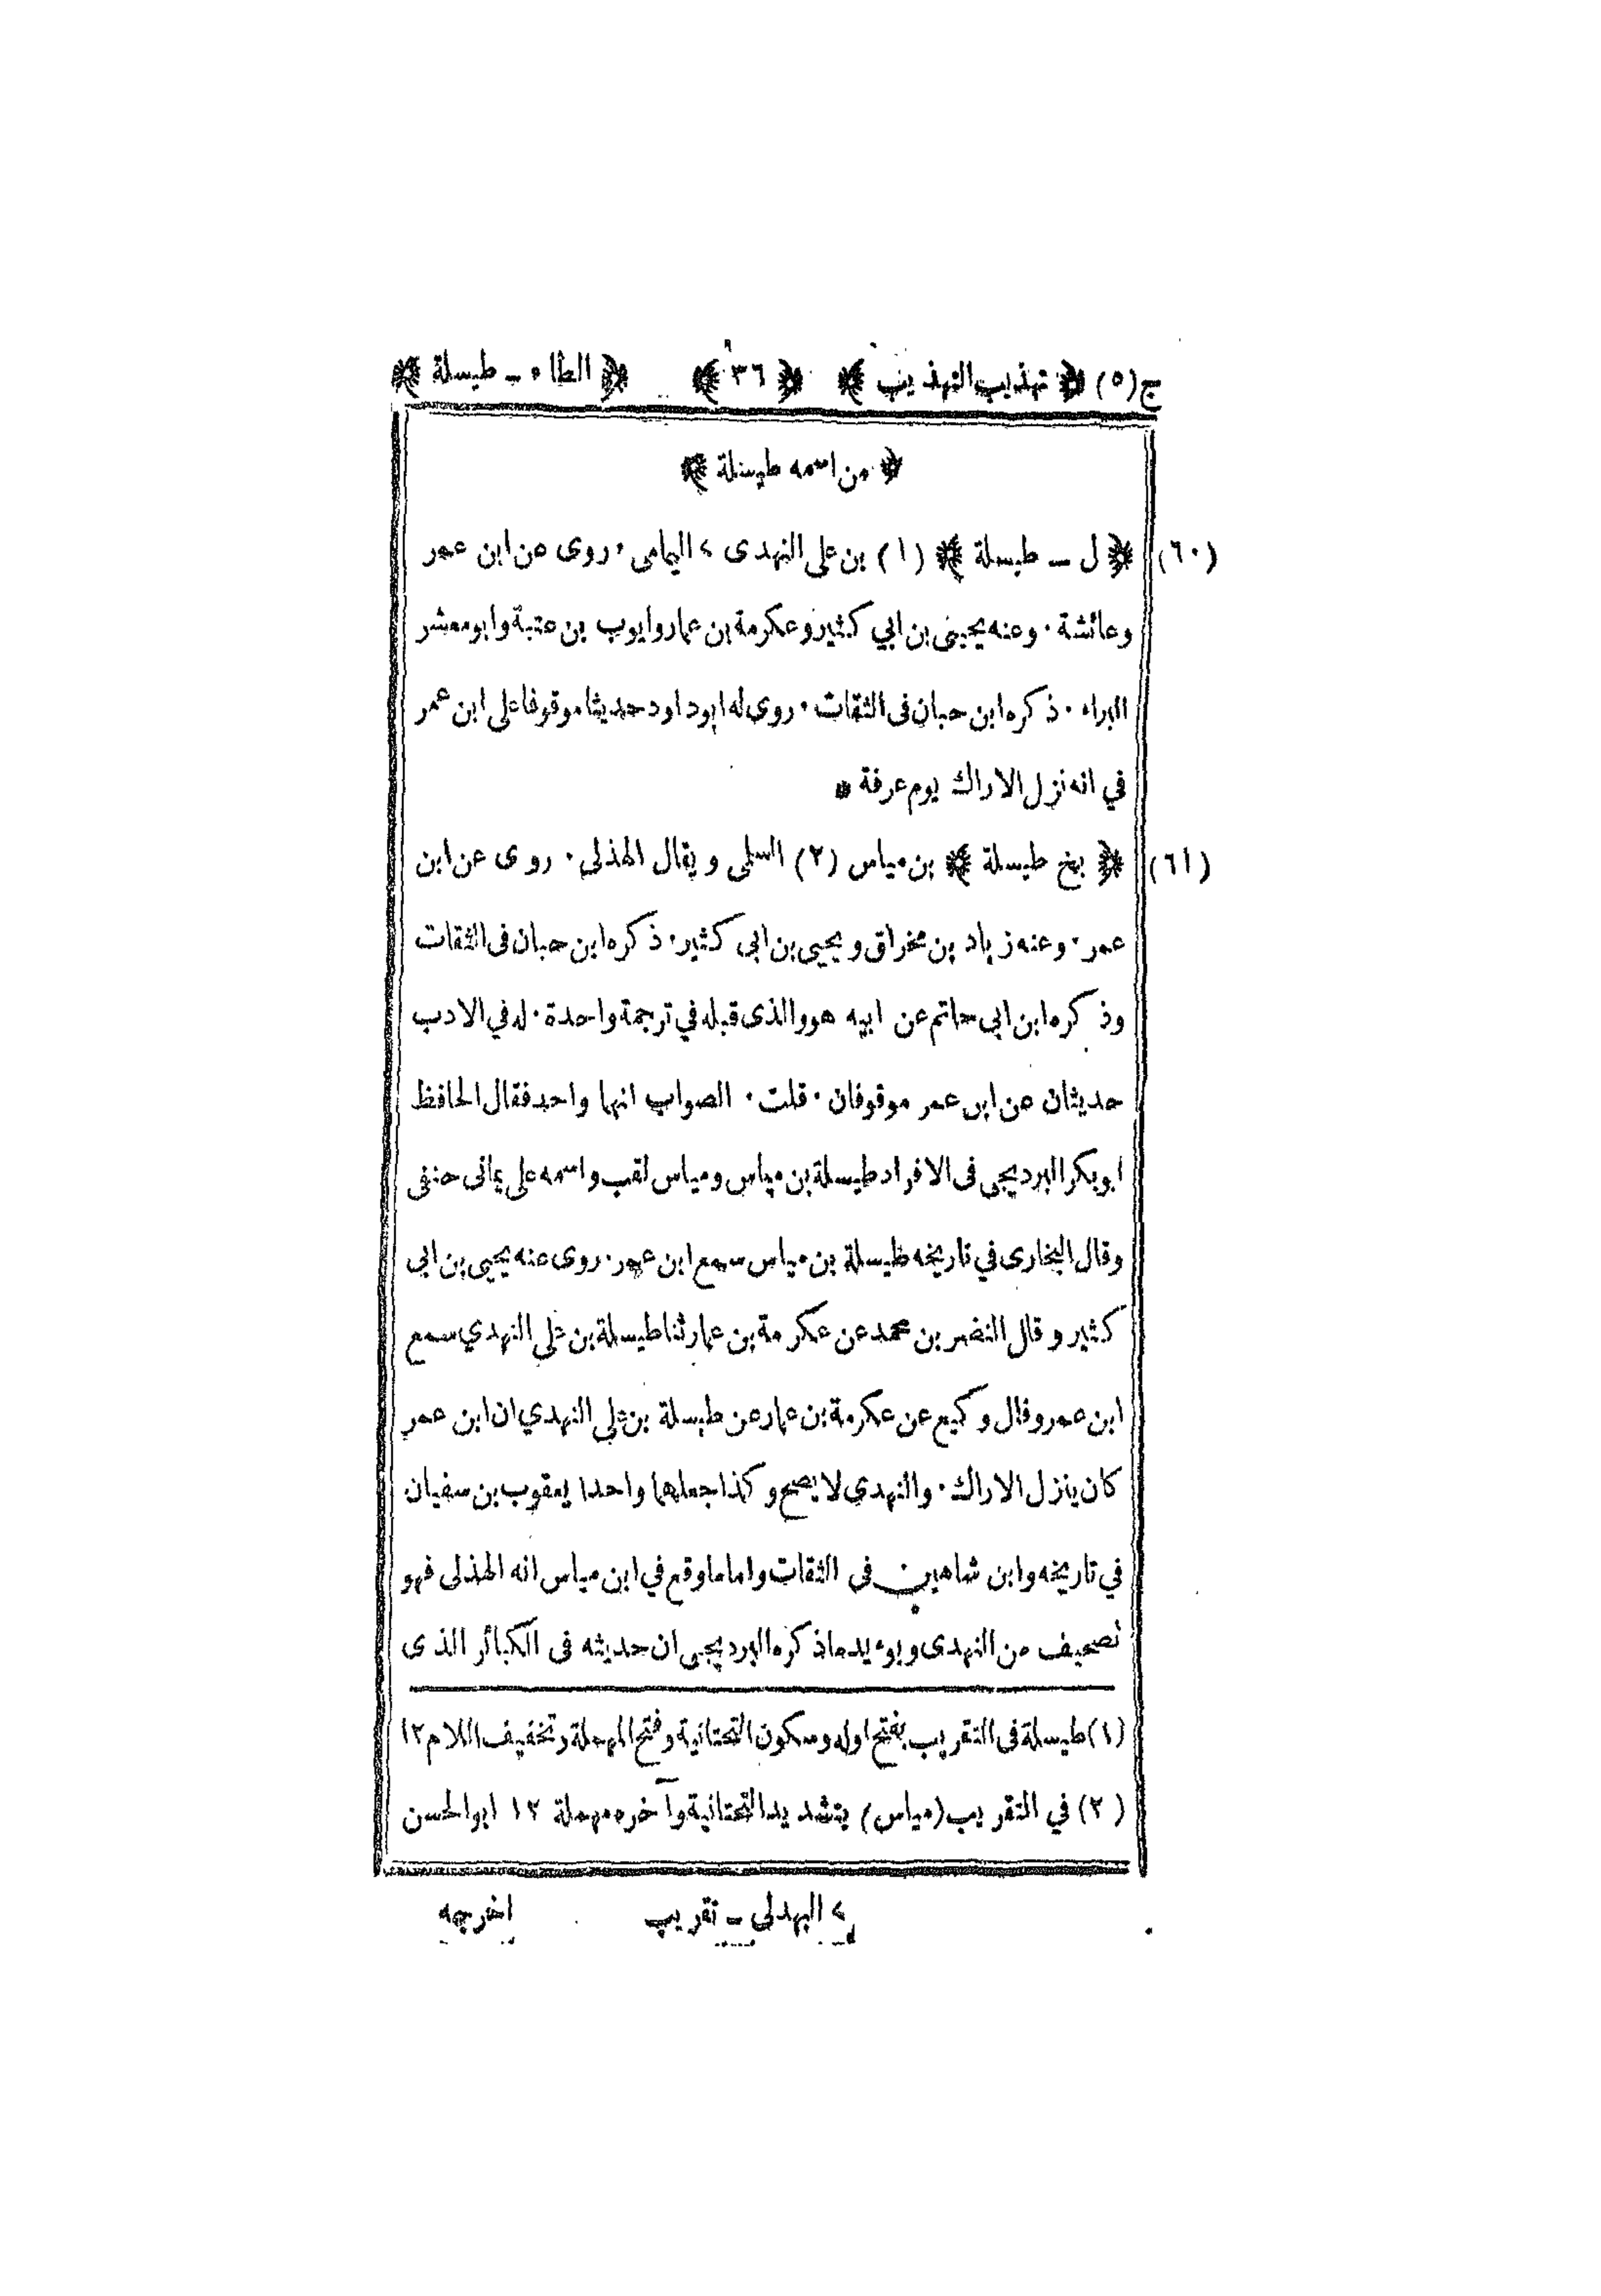 ج(٥) ﴿ تهذيب التهذيب ﴾ ﴿ ٣٦ ﴾ ﴿ الطاء ــ طيسلة ﴾
﴿ من اسمه طيسلة ﴾
(٦٠) ﴿ ل ــ طيسلة ﴾ (١) بن على النهدى > اليمامى ٠ روى عن ابن عمر
وعائشة ٠ وعنه يحيى بن ابي كثير وعكرمة بن عمار وايوب بن عتبة وابو معشر
البراء ٠ ذكره ابن حبان فى الثقات ٠ روى له ابو داود حديثا موقوفا على ابن عمر
في انه نزل الاراك يوم عرفة *
(٦١) ﴿ بخ طيسلة ﴾ بن مياس (٢) السلمى و يقال الهذلى ٠ روى عن ابن
عمر ٠ وعنه زياد بن مخراق و يحيى بن ابى كثير ٠ ذكره ابن حبان فى الثقات
وذكره ابن ابى حاتم عن ابيه هو والذى قبله في ترجمة واحدة ٠ له في الادب
حديثان عن ابن عمر موقوفان ٠ قلت ٠ الصواب انهما واحد فقال الحافظ
ابو بكر البرديجى فى الافراد طيسلة بن مياس ومياس لقب واسمه على يمانى حنفى
وقال البخارى في تاريخه طيسلة بن مياس سمع ابن عمر ٠ روى عنه يحيى بن ابى
كثير وقال النضر بن محمد عن عكرمة بن عمار ثنا طيسلة بن على النهدي سمع
ابن عمر وقال وكيع عن عكرمة بن عمار عن طيسلة بن على النهدي ان ابن عمر
كان ينزل الاراك ٠ والنهدي لا يصح وكذا جعلهما واحدا يعقوب بن سفيان
في تاريخه وابن شاهين فى الثقات واما ما وقع في ابن مياس انه الهذلى فهو
تصحيف من النهدى ويوءيد ماذكره البرديجى ان حديثه فى الكبائر الذى
(١) طيسلة فى التقريب بفتح اوله وسكون التحتانية وفتح المهملة وتخفيف اللام ١٢
(٢) في التقريب (مياس) بتشديد التحتانية وآخره مهملة ١٢ ابو الحسن
> البهدلي ــ تقريب اخرجه